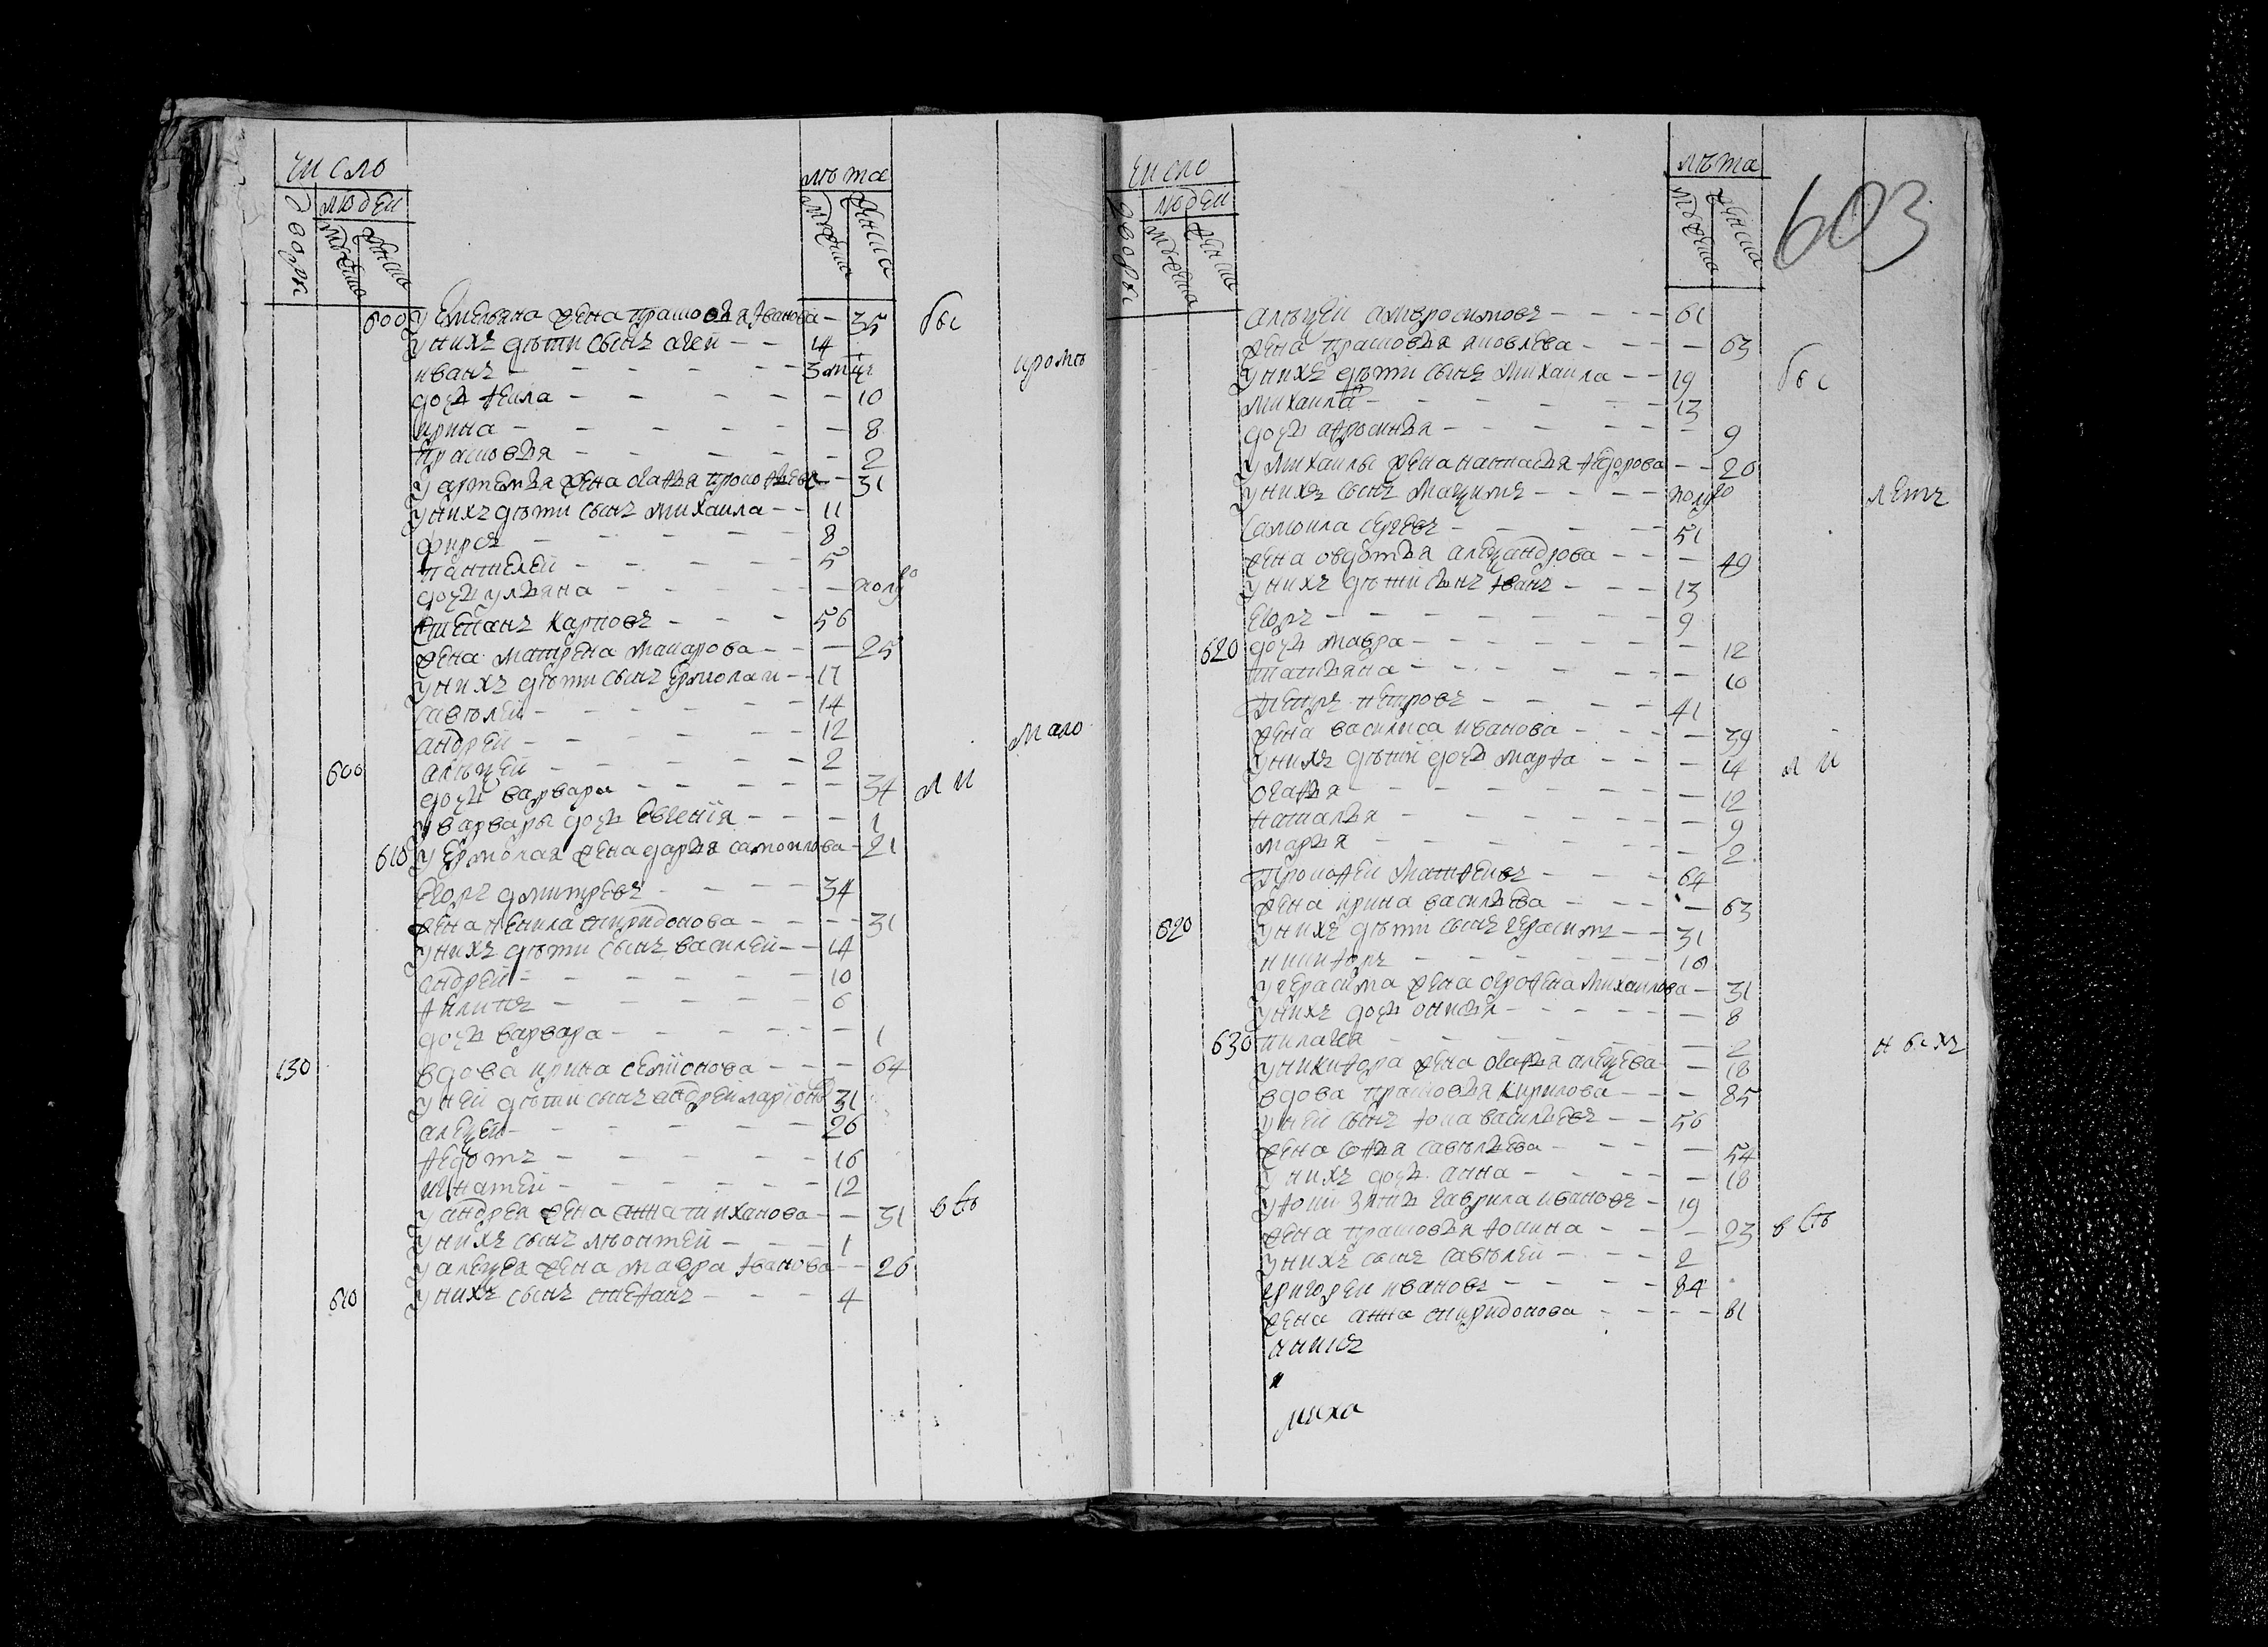 число
лѣта
дворы
людей
мужеска
женска
мужеска
женска
600 у Емельяна жена прасковья Иванова 35 бы
у нихъ дѣти сынъ агей 14
иванъ 3 мцъ кромѣ
дочь Fекла 10
ирина 8
прасковья 2
у артемья жена агаfья прокоfьева 31
у нихъ дѣти сынъ михаила 11
фирсъ 8
пантелей 5
дочь ульяна полуго
Стеfанъ Карповъ 56
жена матрена макарова 25
у нихъ дѣти сынъ Ермолаи 17
савѣлей 14
андрей 12 мало
600 алѣѯей 2
дочь варвара 34 ли
у варвары дочь Евгенiя 1
610 у Ермолая жена дарья самоилова 21
Егоръ дмитревъ 34
жена ненила спиридонова 31
у нихъ дѣти сынъ василей 14
андрей 10
fилипъ 6
дочь варвара 1
130 вдова ирина семiонова 64
у ней дѣти сынъ андрей ларiоновъ 31
алеѯей 26
fедотъ 16
игнатей 12
у андрея жена анна тиханова 31 всѣ
у нихъ сынъ лѣонтей 1
у алеѯея жена мавра Iванова 26
610 у нихъ сынъ стеfанъ 4
число
лѣта
603
дворы
людей
мужеска
женска
мужеска
женска
алѣѯей амвросимовъ 61
жена прасковья яковлева 63
у нихъ дѣти сынъ михаила 19 бы
михаила 13
дочь аfросинья 9
у михаилы жена настасья fедорова 20
у нихъ сынъ маѯимъ полуго летъ
самоила сергевъ 51
жена овдотья алеѯандрова 49
у нихъ дѣти сынъ Iванъ 13
Егоръ 9
620 дочь мавра 12
татьяна 10
петръ петровъ 41
жена василиса иванова 39
у нихъ дѣти дочь марfа 14 ли
огаfья 12
наталья 9
марья 2
Прокоfей Матfеивъ 64
жена ирина васильева 63
620 у нихъ дѣти сынъ герасимъ 31
никиfоръ 18
у герасима жена огроfена михаилова 31
у нихъ дочь онисья 8
630 пилагея 2 н бихъ
у никиfора жена агаfья алеѯева 18
вдова прасковья Кирилова 85
у ней сынъ fока васильевъ 56
жена соfья савѣльева 54
у нихъ дочь анна 18
у fоки зять гаврила ивановъ 19
жена прасковья fокина 23 всѣ
у нихъ сынъ савѣлей 2
григорей ивановъ 84
жена анна спиридонова 81
миха